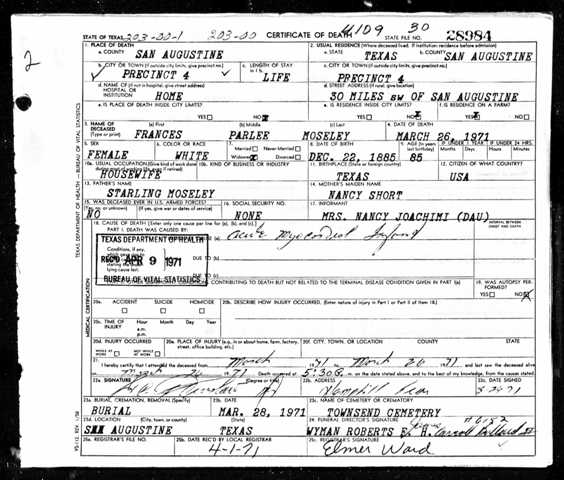 STATE OF TEXAS 203-00-1 203-00 CERTIFICATE OF DEATH 4109 30
STATE FILE NO. 28984
2
TEXAS DEPARTMENT OF HEALTH — BUREAU OF VITAL STATISTICS
1. PLACE OF DEATH 2. USUAL RESIDENCE (Where deceased lived. If institution: residence before admission)
a. COUNTY SAN AUGUSTINE a. STATE TEXAS b. COUNTY SAN AUGUSTINE
b. CITY OR TOWN (If outside city limits, give precinct no.) c. LENGTH OF STAY in 1 b. c. CITY OR TOWN (If outside city limits, give precinct no.)
PRECINCT 4 LIFE PRECINCT 4
d. NAME OF (If not in hospital, give street address) HOSPITAL OR INSTITUTION d. STREET ADDRESS (If rural, give location)
HOME 30 MILES SW OF SAN AUGUSTINE
e. IS PLACE OF DEATH INSIDE CITY LIMITS? e. IS RESIDENCE INSIDE CITY LIMITS? f. IS RESIDENCE ON A FARM?
YES NO YES NO YES NO
3. NAME OF DECEASED (Type or print) (a) First (b) Middle (c) Last 4. DATE OF DEATH
FRANCES PARLEE MOSELEY MARCH 26, 1971
5. SEX 6. COLOR OR RACE 7. Married Never Married 8. DATE OF BIRTH 9. AGE (In years last birthday) IF UNDER 1 YEAR IF UNDER 24 HRS.
FEMALE WHITE Widowed Divorced DEC. 22, 1885 85 Months Days Hours Min.
10a. USUAL OCCUPATION (Give kind of work done 10b. KIND OF BUSINESS OR INDUSTRY 11. BIRTHPLACE (State or foreign country) 12. CITIZEN OF WHAT COUNTRY?
HOUSEWIFE TEXAS USA
13. FATHER'S NAME 14. MOTHER'S MAIDEN NAME
STARLING MOSELEY NANCY SHORT
15. WAS DECEASED EVER IN U.S. ARMED FORCES? 16. SOCIAL SECURITY NO. 17. INFORMANT
(Yes, no, or unknown) (If yes, give war or dates of service)
NO NONE MRS. NANCY JOACHIMI (DAU)
18. CAUSE OF DEATH [Enter only one cause per line for (a), (b), and (c).] INTERVAL BETWEEN ONSET AND DEATH
PART I. DEATH WAS CAUSED BY:
TEXAS DEPARTMENT OF HEALTH
Conditions, if any, DUE TO (b)
REC'D APR 9 1971
lying cause last. DUE TO (c)
BUREAU OF VITAL STATISTICS
CONTRIBUTING TO DEATH BUT NOT RELATED TO THE TERMINAL DISEASE CONDITION GIVEN IN PART I(a) 19. WAS AUTOPSY PERFORMED?
YES NO
MEDICAL CERTIFICATION
20a. ACCIDENT SUICIDE HOMICIDE 20b. DESCRIBE HOW INJURY OCCURRED. (Enter nature of injury in Part I or Part II of item 18.)
20c. TIME OF INJURY Hour Month Day Year
a.m.
p.m.
20d. INJURY OCCURRED 20e. PLACE OF INJURY (e.g., in or about home, farm, factory, street, office building, etc.) 20f. CITY, TOWN, OR LOCATION COUNTY STATE
WHILE AT WORK NOT WHILE AT WORK
21. I hereby certify that I attended the deceased from March 71 March 26 71 and last saw the deceased alive
Death occurred at 5:30 m. on the date stated above, and to the best of my knowledge, from the causes stated
22a. SIGNATURE (Degree or title) 22b. ADDRESS 22c. DATE SIGNED
Hemphill
23a. BURIAL, CREMATION, REMOVAL (Specify) 23b. DATE 23c. NAME OF CEMETERY OR CREMATORY
BURIAL MAR. 28, 1971 TOWNSEND CEMETERY
23d. LOCATION (City, town, or county) (State) 24. FUNERAL DIRECTOR'S SIGNATURE
SAN AUGUSTINE TEXAS WYMAN ROBERTS
25a. REGISTRAR'S FILE NO. 25b. DATE REC'D BY LOCAL REGISTRAR 25c. REGISTRAR'S SIGNATURE
4-1-71 Elmer Ward